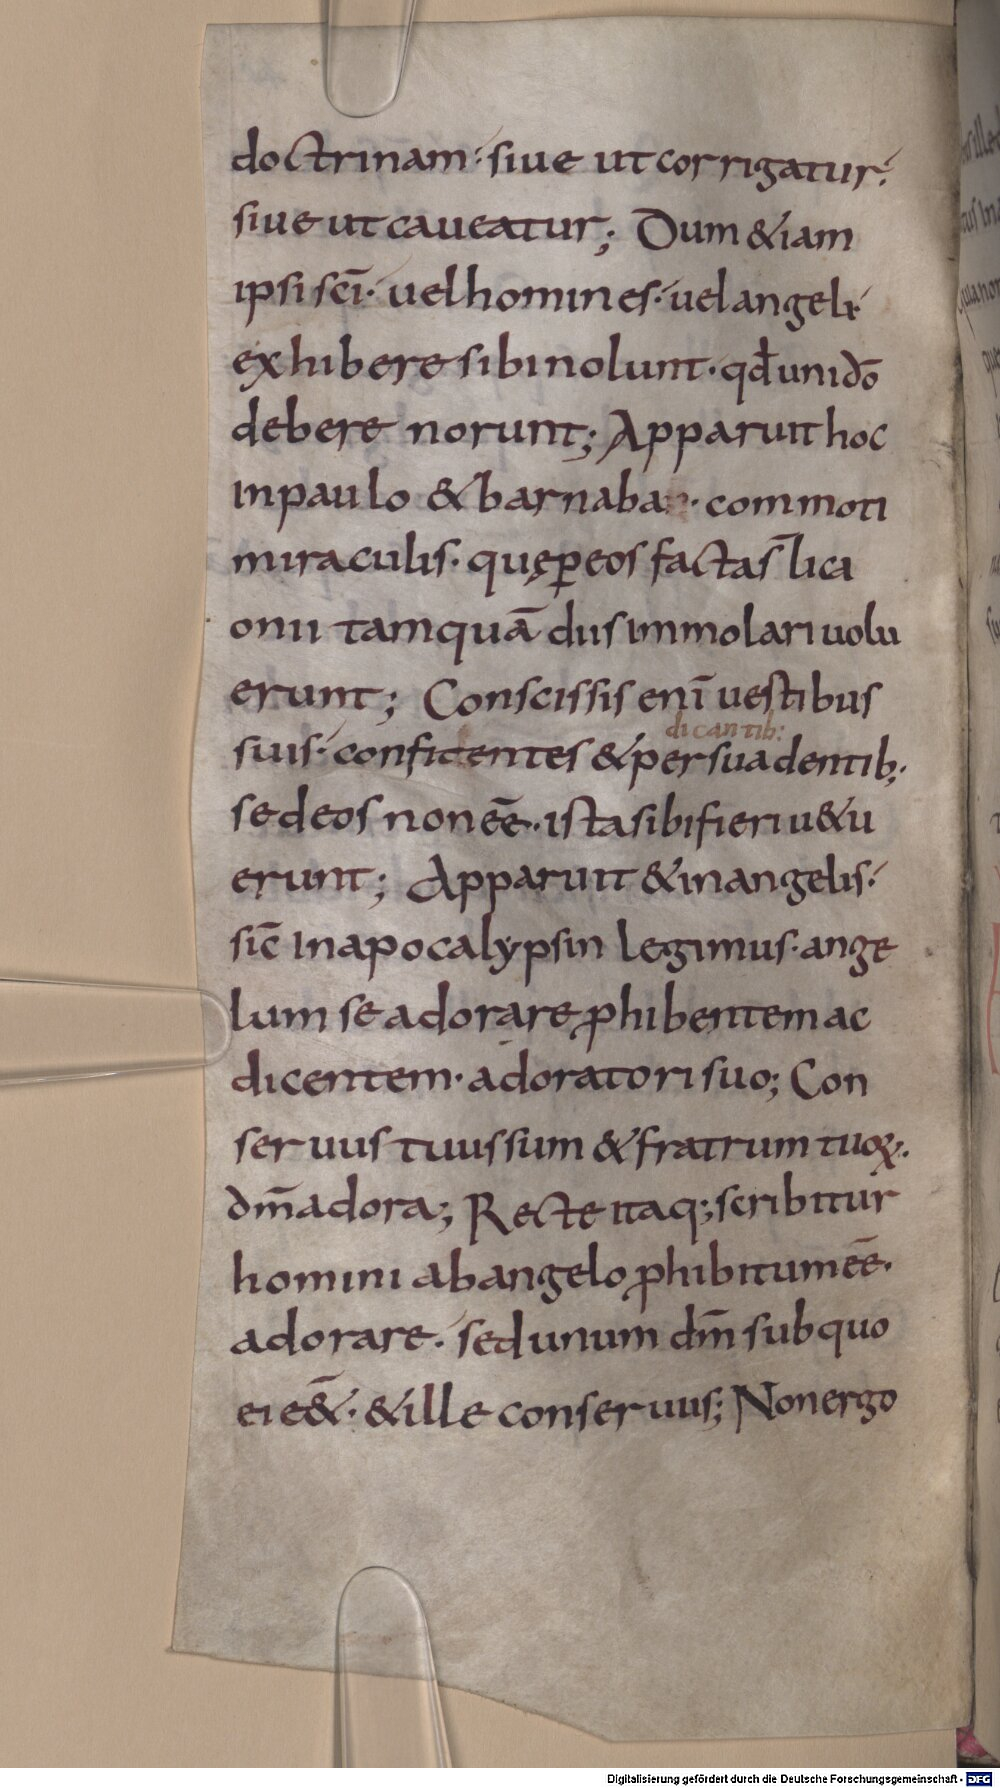 doctrinam· siue ut corrigatur·
siue ut caueatur; Dum & iam
ipsi sci̅· uel homines· uel angeli·
exhibere sibi nolunt· qd̅ uni do̅
debere norunt; Apparuit hoc
in paulo & barnaba· commoti
miraculis· quę ꝑ eos facta s̅ lica
onii tamqua̅ diis immolari uolu
erunt; Conscissis eni̅ uestibus
dicantib:
suis· confitentes & persuadentib;·
se deos non ee̅· ista sibi fieri u&u
erunt; Apparuit & in angelis·
sic̅ in apocalypsin legimus· ange
lum se adorare ꝓhibentem ac
dicentem· adoratori suo; Con
seruus tuus sum & fratrum tuoꝝ·
dm̅ adora; Recte itaq; scribitur
homini ab angelo ꝓhibitum ee̅·
adorare· sed unum dm̅ sub quo
ei e&̅· & ille conseruus; Non ergo
Digitalisierung gefördert durch die Deutsche Forschungsgemeinschaft - DFG